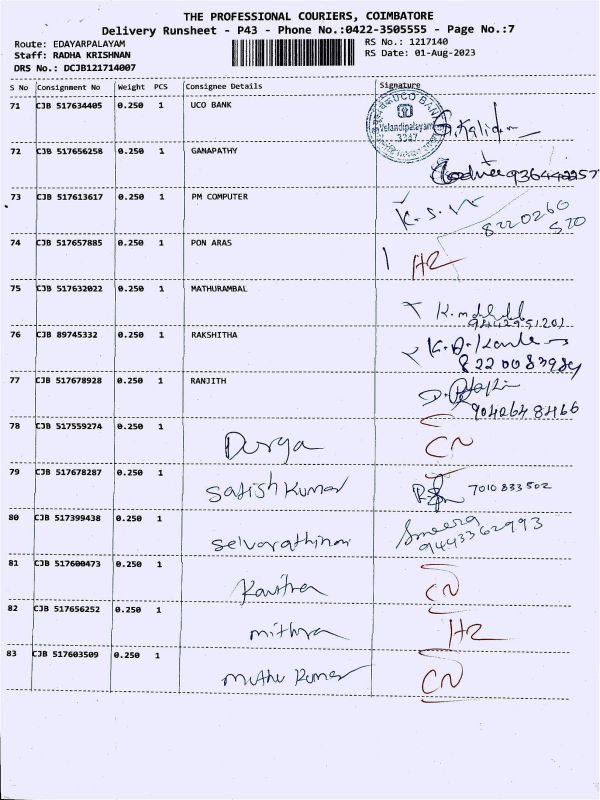 THE PROFESSIONAL COURIERS, COIMBATORE
Delivery Runsheet - P43 - Phone No.:0422-3505555 - Page No.:7
Route: EDAYARPALAYAM RS No.: 1217140
Staff: RADHA KRISHNAN RS Date: 01-Aug-2023
DRS No.: DCJB121714007
S No Consignment No Weight PCS Consignee Details Signature
71 CJB 517634405 0.250 1 UCO BANK
UCO BANK
Velandipalayam
3347
72 CJB 517656258 0.250 1 GANAPATHY
73 CJB 517613617 0.250 1 PM COMPUTER K.S.
8220260
520
74 CJB 517657885 0.250 1 PON ARAS
75 CJB 517632022 0.250 1 MATHURAMBAL
9442951201
76 CJB 89745332 0.250 1 RAKSHITHA
8220083984
77 CJB 517678928 0.250 1 RANJITH
9042648466
78 CJB 517559274 0.250 1 Durga CN
79 CJB 517678287 0.250 1 Satish Kumar 7010833502
80 CJB 517399438 0.250 1 Selvarathinam Smeera
9443362993
81 CJB 517600473 0.250 1 Kavitha CN
82 CJB 517656252 0.250 1 mithra
83 CJB 517603509 0.250 1 muthu Kumar CN